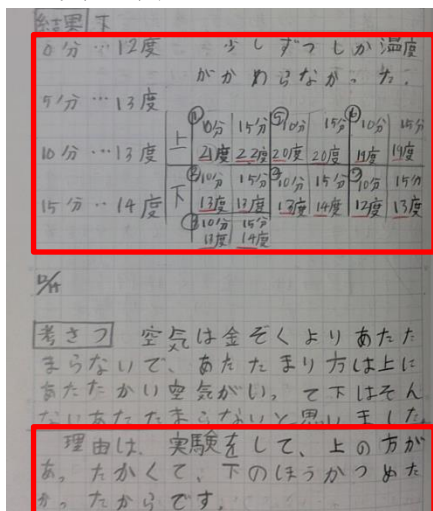 結果 下
0分…12度 少しずつしか温度
がかわらなかった.
5分…13度
10分…13度
15分…14度
上 ① 10分 15分 ⑤ 10分 15分 ⑥ 10分 15分
21度 22度 20度 20度 19度 19度
下 ② 10分 15分 10分 15分 10分 15分
13度 13度 13度 14度 12度 13度
10分 15分
13度 14度
12/14
考さつ 空気は金ぞくよりあたた
まらないで、あたたまり方は上に
あたたかい空気がいって下はそん
なにあたたまらないと思いました。
理由は、実験をして、上の方が
あったかくて、下のほうがつめた
かったからです。